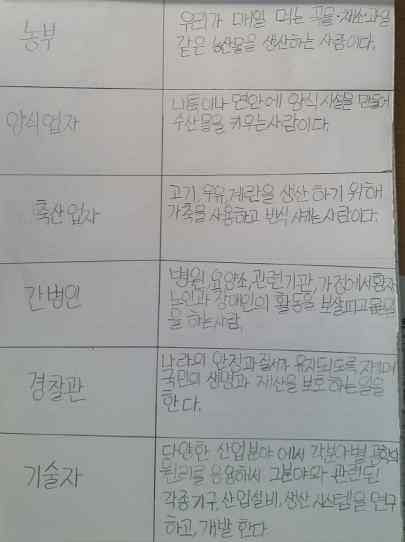 농부
우리가 매일 먹는 곡물·채소·과일
같은 농산물을 생산하는 사람이다.
양식업자
연안에 양식 시설을 만들어
수산물을 키우는 사람이다.
축산업자
고기, 우유, 계란을 생산 하기 위해
가축을 사용하고 번식 시키는 사람이다.
간병인
병원, 요양소, 관련기관, 가정에서 환자
노인과 장애인의 활동을 보살피고
을 하는 사람.
경찰관
나라의 안전과 질서가 유지되도록
국민의 생명과 재산을 보호하는 일을
한다.
기술자
다양한 산업분야 에서 각분야별
원리를 응용해서 그분야와 관련된
각종기구, 산업설비, 생산 시스템을 연구
하고, 개발 한다.